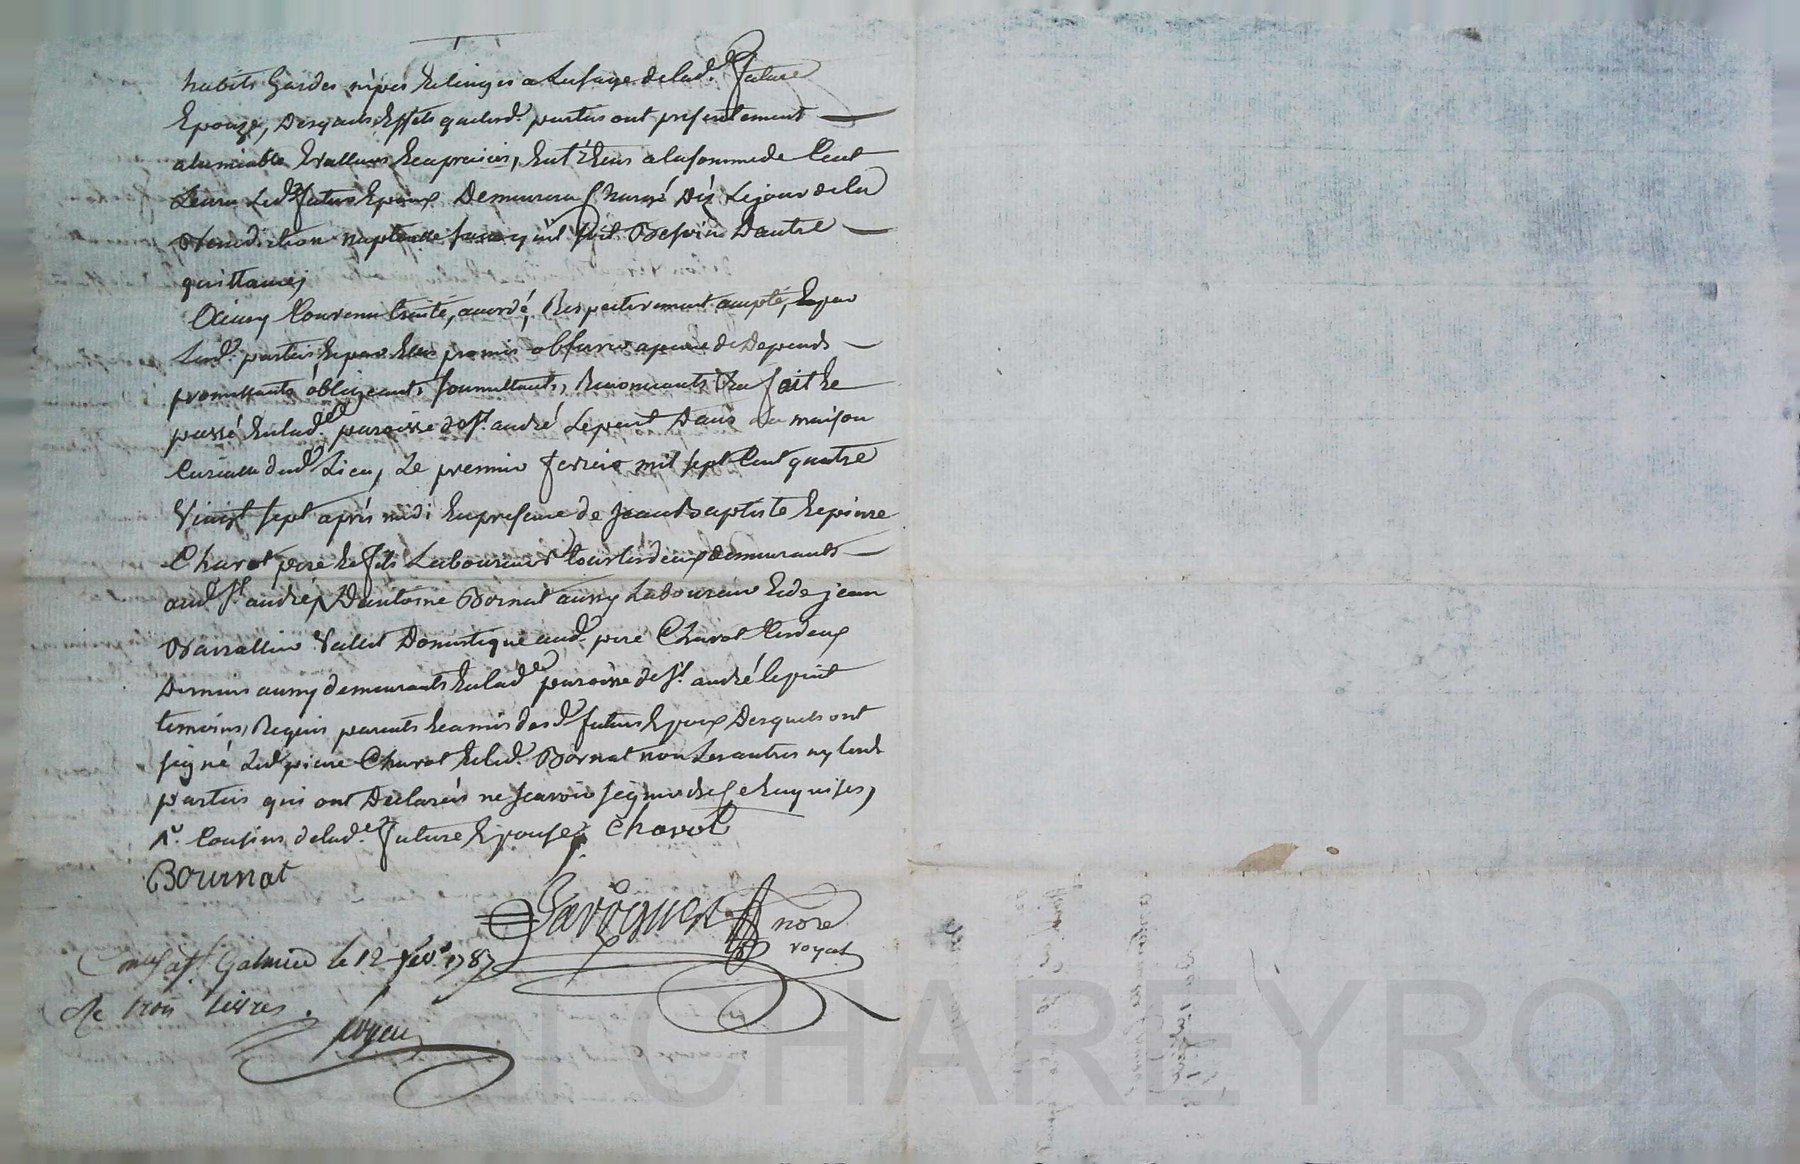 habits hardes nipes & linges a Lusage delad.e future
Epouze, Desquels Effets quelesd. parties ont presentement
alamiable Evalluees & apreciées, & a la somme de Cent
Led. futur Epoux Demeurera Chargé Dès Lejour dela
Benediction nuptialle sans qu'il soit Besoin Dautre
quittance;
Ainsy Convenu traité, accordé, Respectivement accepté, Epar
Lesd. parties & par Elles promis observer apeine de Depends
promettants, obligeants, soumettants, Renonceants &a fait &
passé Enlad.e paroisse de St. andré Lepuit Dans La maison
Curialle dud. Lieu, Le premier fevrier mil sept Cent quatre
Vingt sept après midi Enpresence de Jean Baptiste & pierre
Chavot pere & fils Laboureurs tous les deux demeurants
aud. St. andré, D'antoine Bornat aussy Laboureur & de jean
Vallet Domestique aud. pere Chavot Les deux
Derniers aussy demeurants Enlad.e paroisse de St. andré lepuit
temoins Requis parents & amis desd. futurs Epoux Desquels ont
signé Led. pierre Chavot & led. Bornat non Les autres ny lesd.
parties qui ont Declarées ne sçavoir signer de ce Enquises,
Cousins delad.e future Epouse. Chavot
Bournat
nore
royal
St. Galmier le 12 fév. 1787
trois livres.
CHAREYRON